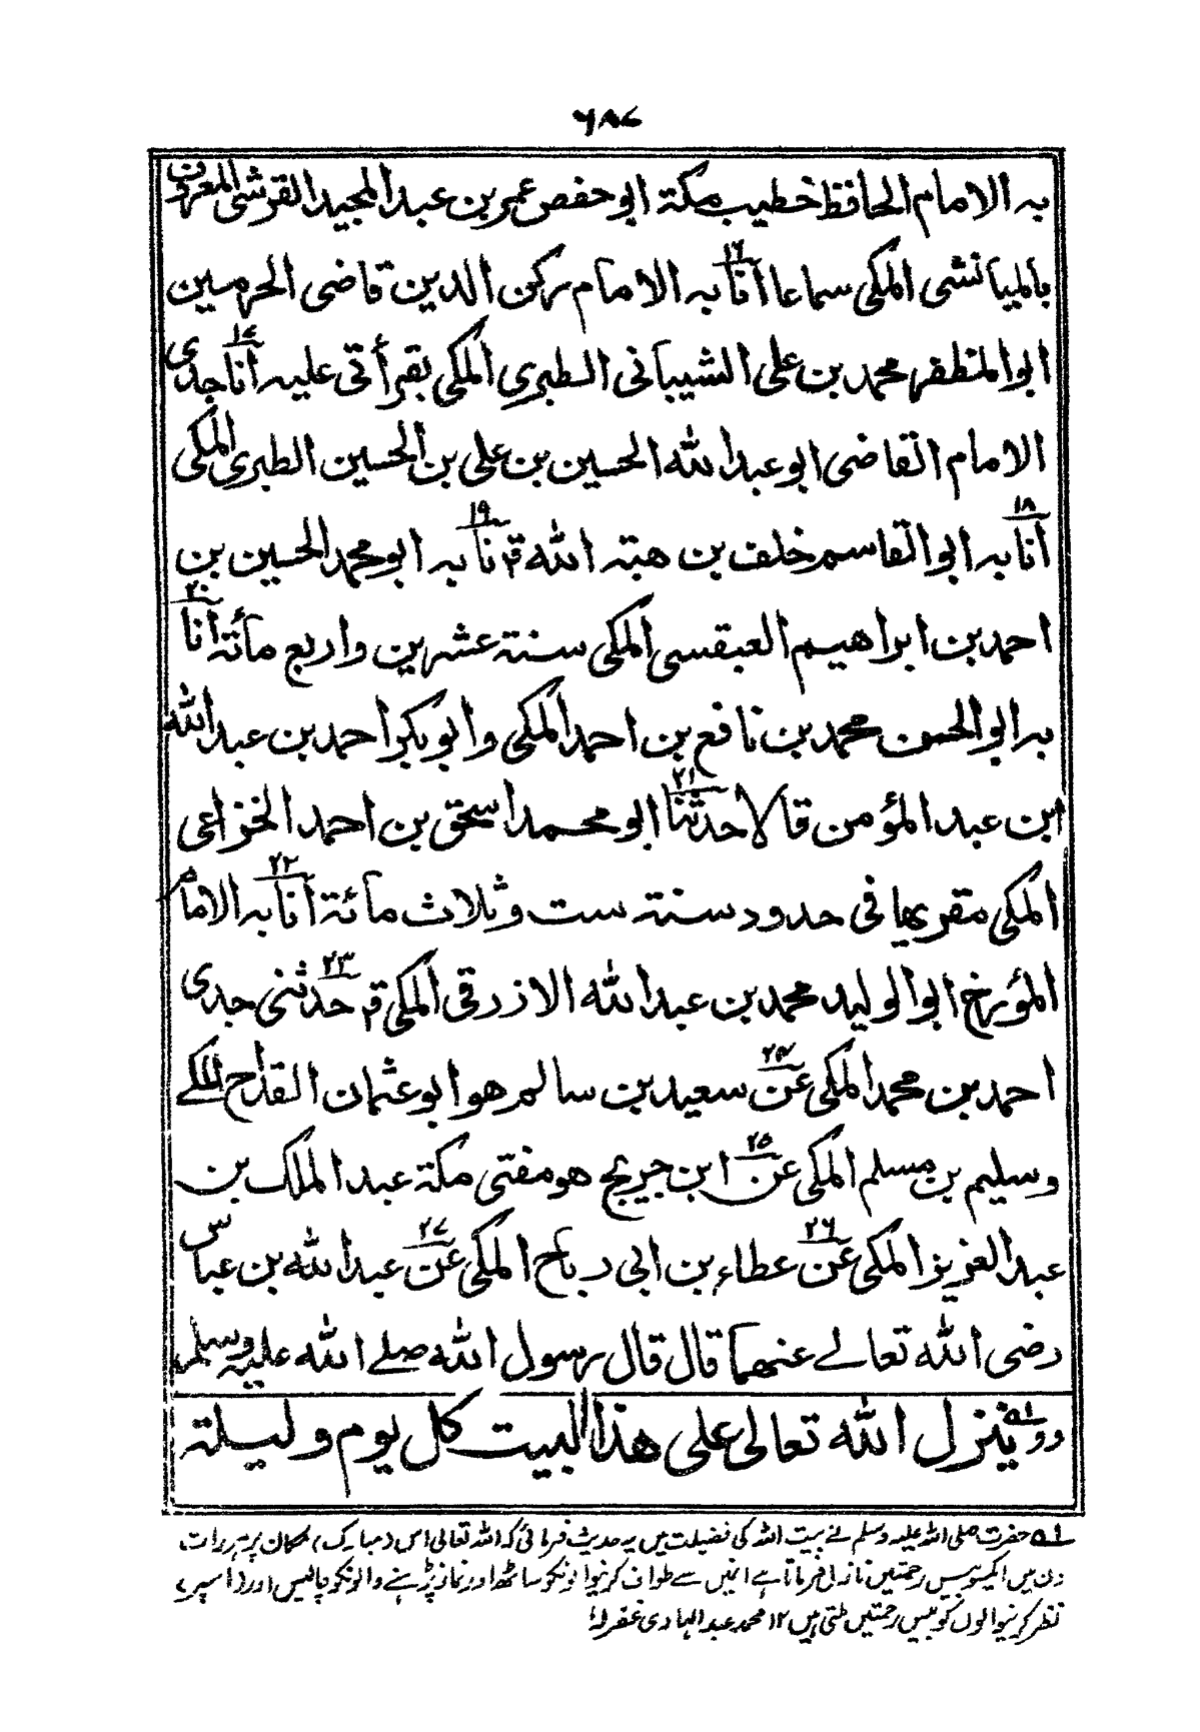 ٦٨٧
به الامام الحافظ خطيب مكة ابو حفص عمر بن عبد المجيد القرشي المعروف
بالميانشي المكي سماعا ١٦ أنا به الامام ركن الدين قاضي الحرمين
ابو المظفر محمد بن علي الشيباني الطبري المكي بقرأتي عليه ١٧ أنا جدي
الامام القاضي ابو عبد الله الحسين بن علي بن الحسين الطبري المكي
١٨ أنا به ابو القاسم خلف بن هبة الله قم ١٩ نا به ابو محمد الحسين بن
احمد بن ابراهيم العبقسي المكي سنة عشرين واربع مائة ٢٠ أنا
به ابو الحسن محمد بن نافع بن احمد المكي وابو بكر احمد بن عبد الله
ابن عبد المؤمن قالا ٢١ حدثنا ابو محمد اسحق بن احمد الخزاعي
المكي مقريها في حدود سنة ست وثلاث مائة ٢٢ أنا به الامام
المؤرخ ابو الوليد محمد بن عبد الله الازرقي المكي قم ٢٣ حدثني جدي
احمد بن محمد المكي ٢٤ عن سعيد بن سالم هو ابو عثمان القداح المكے
وسليم بن مسلم المكي ٢٥ عن ابن جريج هو مفتي مكة عبد الملك بن
عبد العزيز المكي ٢٦ عن عطاء بن ابي رباح المكي ٢٧ عن عبد الله بن عباس
رضي الله تعالے عنهما قال قال رسول الله صلے الله عليه وسلم
وو ينزل الله تعالى على هذا البيت كل يوم وليلة
ا ؎ حضرت صلی اللہ علیہ وسلم نے بیت اللہ کی فضیلت میں یہ حدیث فرمائی کہ اللہ تعالی اس (مبارک) مکان پر ہر رات
دن میں ایکسو بیس رحمتیں نازل فرماتا ہے انمیں سے طواف کرنیوالونکو ساٹھ اور نماز پڑہنے والونکو چالیس اور (اسپر)
نظر کرنیوالوں کو بیس رحمتیں ملتی ہیں ۱۲ محمد عبد الہادی غفرلہ